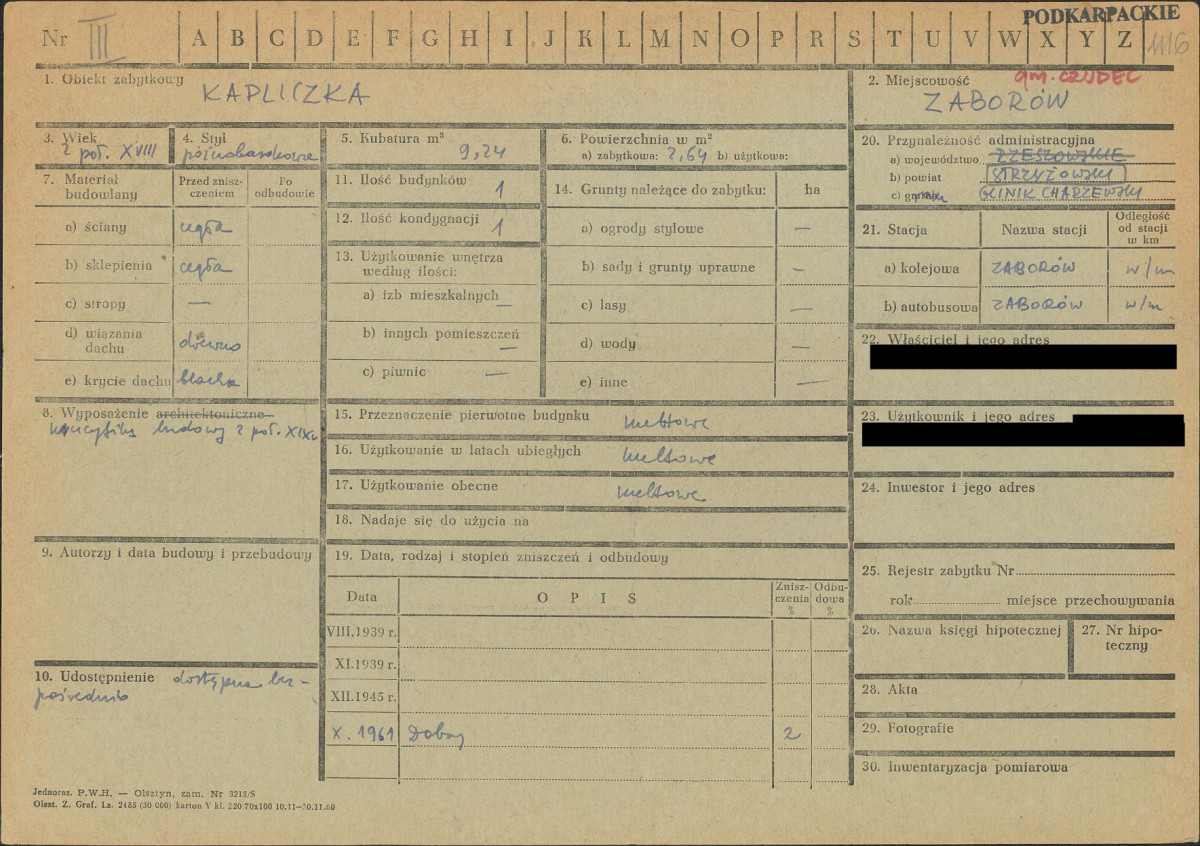 PODKARPACKIE
Nr III A B C D E F G H I J K L M N O P R S T U V W X Y Z 1116
1. Obiekt zabytkowy
KAPLICZKA
2. Miejscowość
gm. CZUDEC
ZABORÓW
3. Wiek
2 poł. XVIII
4. Styl
późnobarokowa
5. Kubatura m³
9,24
6. Powierzchnia w m²
a) zabytkowa: 2,64 b) użytkowa:
7. Materiał budowlany
Przed zniszczeniem
Po odbudowie
a) ściany cegła
b) sklepienia cegła
c) stropy —
d) wiązania dachu drewno
e) krycie dachu blacha
8. Wyposażenie architektoniczne
krucyfiks ludowy 2 poł. XIX w
9. Autorzy i data budowy i przebudowy
10. Udostępnienie dostępna bez-
pośrednio
11. Ilość budynków 1
12. Ilość kondygnacji 1
13. Użytkowanie wnętrza
według ilości:
a) izb mieszkalnych —
b) innych pomieszczeń —
c) piwnic —
14. Grunty należące do zabytku: ha
a) ogrody stylowe —
b) sady i grunty uprawne —
c) lasy —
d) wody —
e) inne —
15. Przeznaczenie pierwotne budynku kultowe
16. Użytkowanie w latach ubiegłych kultowe
17. Użytkowanie obecne kultowe
18. Nadaje się do użycia na
19. Data, rodzaj i stopień zniszczeń i odbudowy
Data
OPIS
Zniszczenia %
Odbudowa %
VIII.1939 r.
XI.1939 r.
XII.1945 r.
X. 1961 Dobry 2
20. Przynależność administracyjna
a) województwo RZESZOWSKIE
b) powiat STRZYŻOWSKI
c) GLINIK CHARZEWSKI
21. Stacja
Nazwa stacji
Odległość od stacji w km
a) kolejowa ZABORÓW w/m
b) autobusowa ZABORÓW w/m
22. Właściciel i jego adres
23. Użytkownik i jego adres
24. Inwestor i jego adres
25. Rejestr zabytku Nr
rok miejsce przechowywania
26. Nazwa księgi hipotecznej
27. Nr hipo-
teczny
28. Akta
29. Fotografie
30. Inwentaryzacja pomiarowa
Jednoraz. P.W.H. — Olsztyn, zam. Nr 3215/S
Olszt. Z. Graf. Lz. 2485 (30 000) karton V kl. 220 70x100 10.11—30.11.60